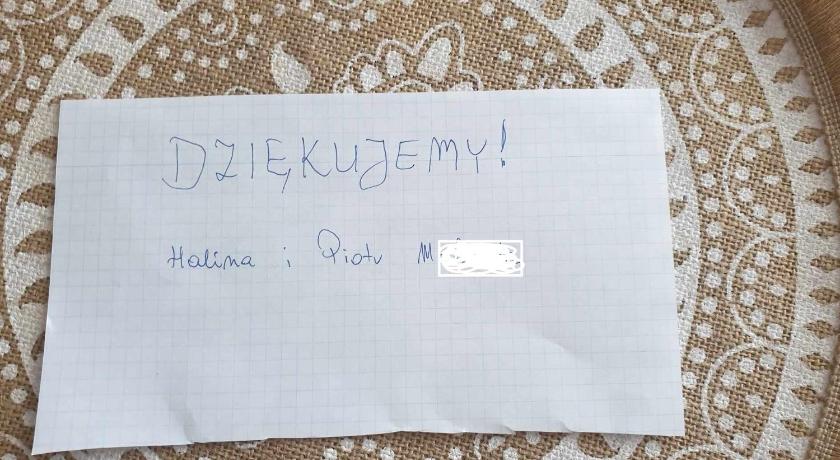 DZIĘKUJEMY!
Halina i Piotr M